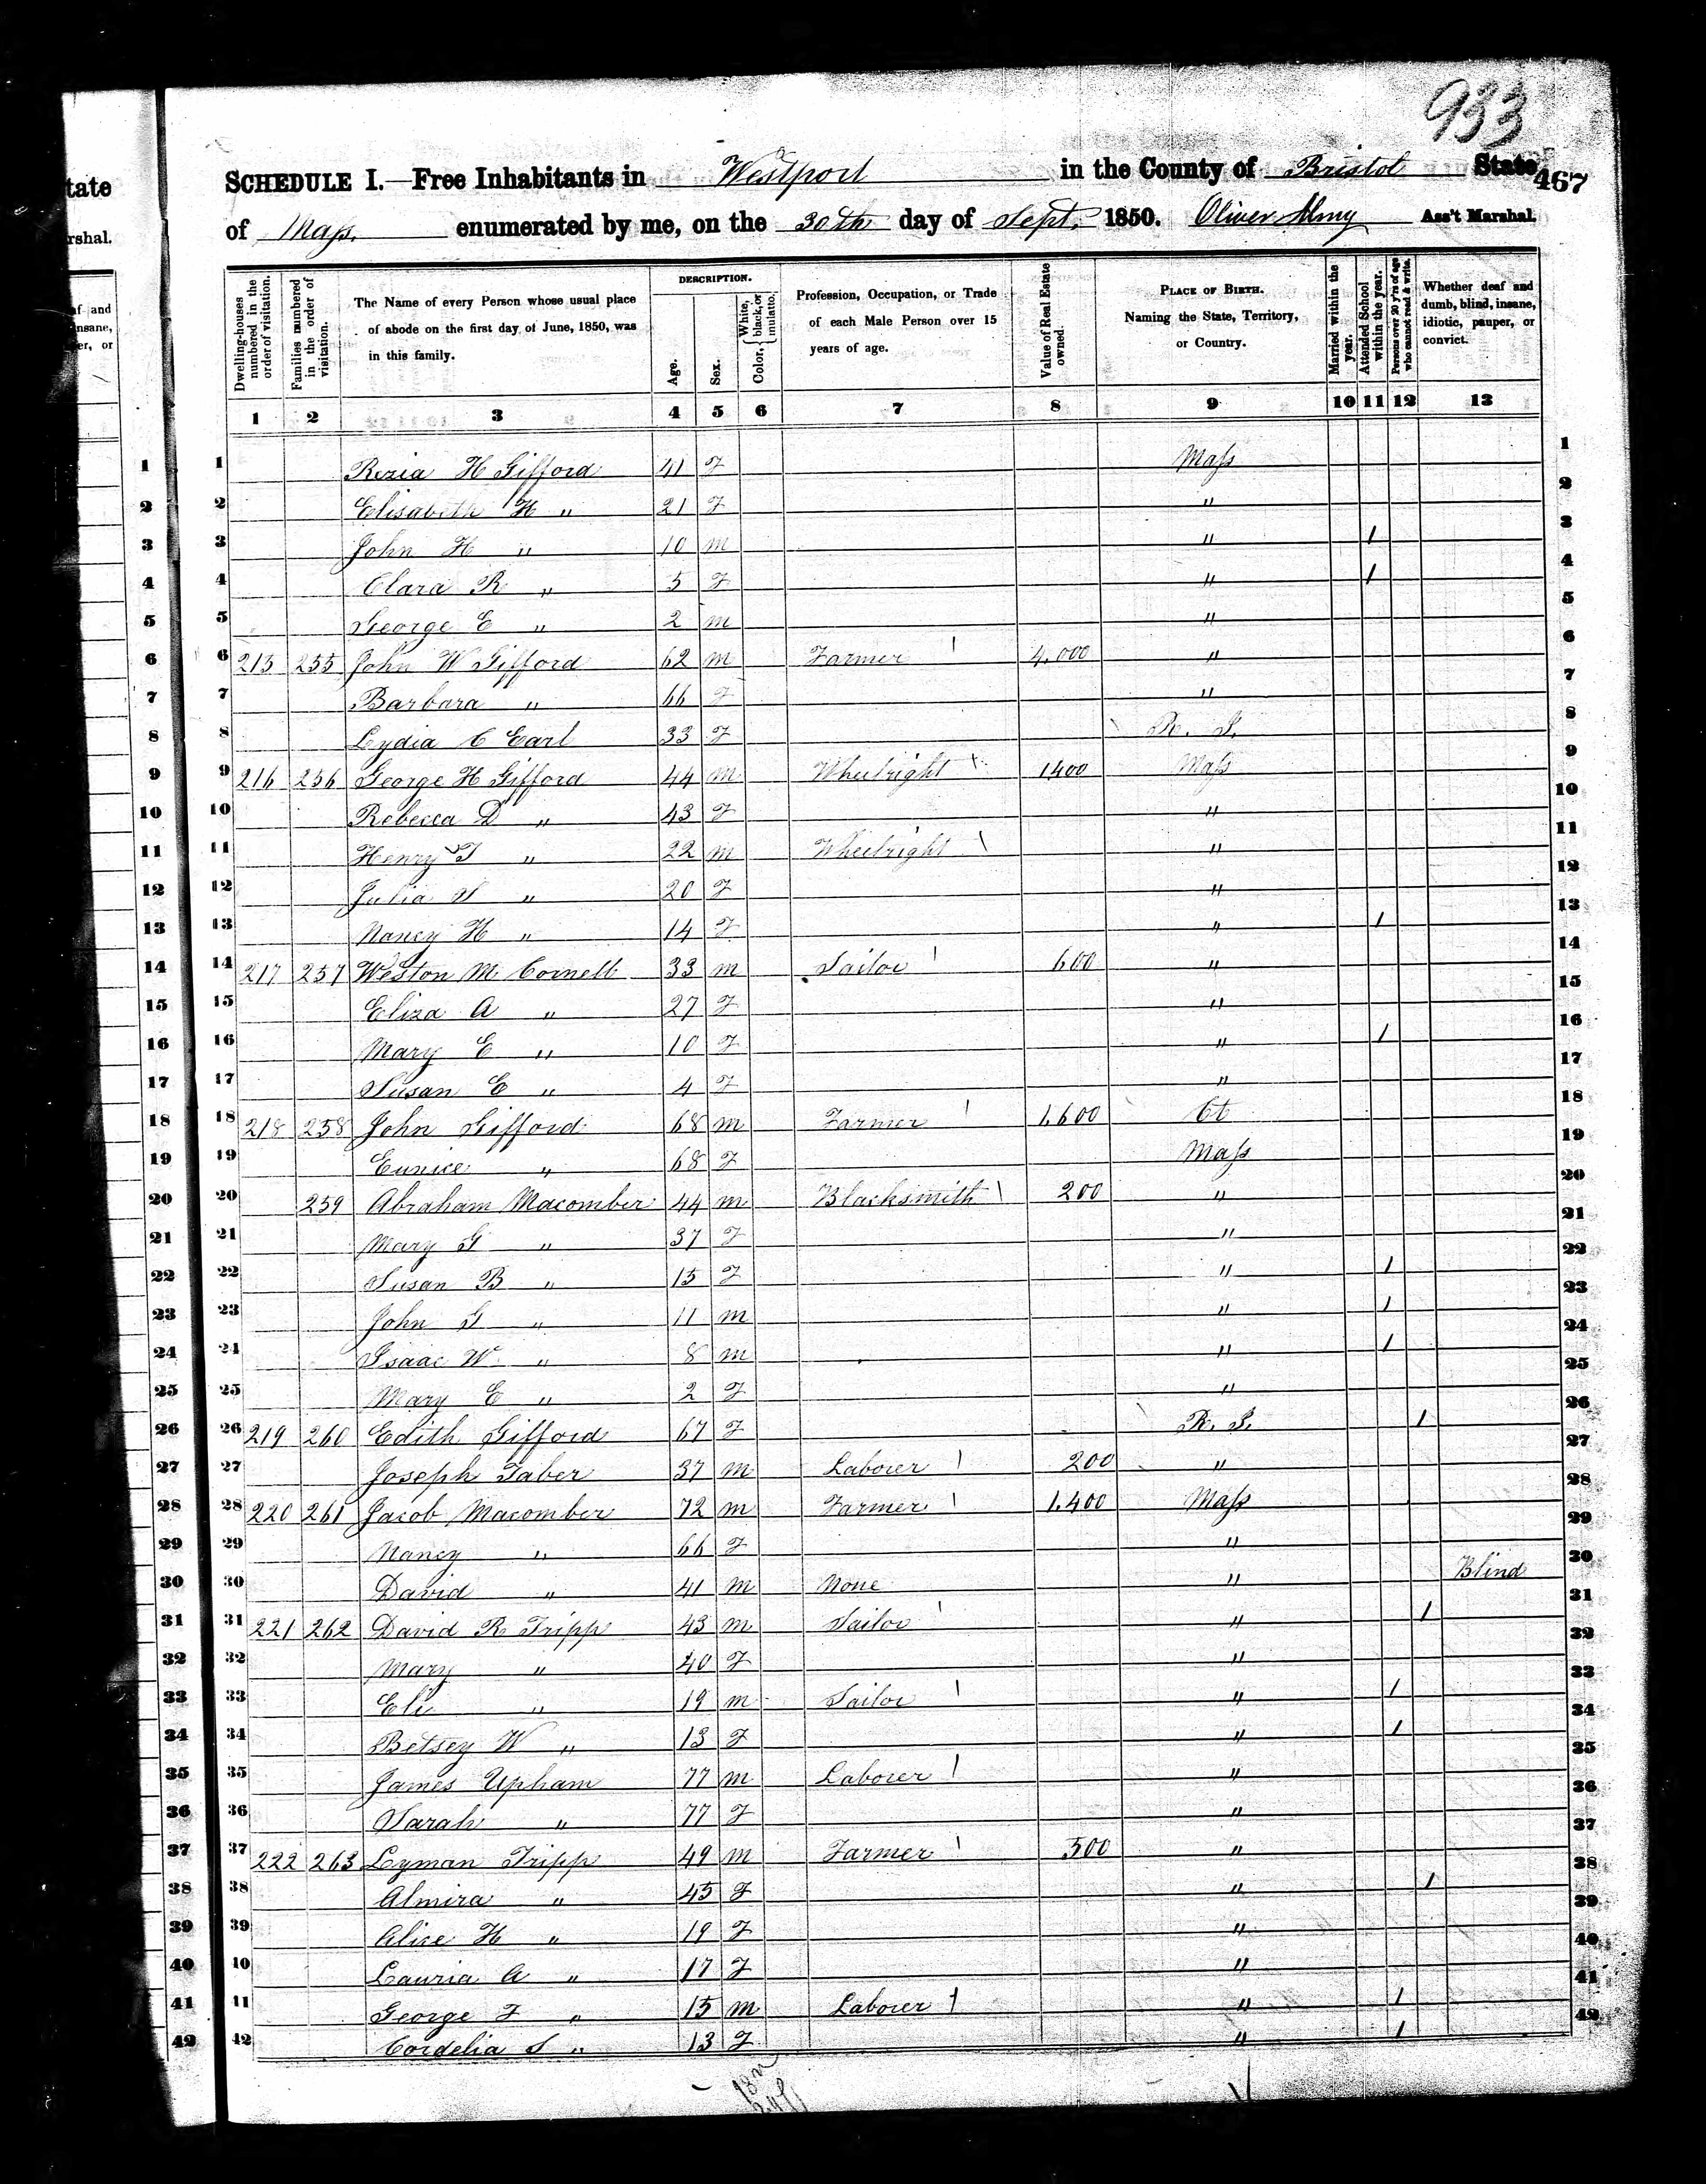 933
SCHEDULE I.—Free Inhabitants in Westport in the County of Bristol State
467
of Mass. enumerated by me, on the 30th day of Sept. 1850. Oliver Almy Ass't Marshal.
Dwelling-houses numbered in the order of visitation.
Families numbered in the order of visitation.
The Name of every Person whose usual place of abode on the first day of June, 1850, was in this family.
DESCRIPTION.
Age.
Sex.
Color, { White, black, or mulatto.
Profession, Occupation, or Trade of each Male Person over 15 years of age.
Value of Real Estate owned.
PLACE OF BIRTH. Naming the State, Territory, or Country.
Married within the year.
Attended School within the year.
Persons over 20 y'rs of age who cannot read & write.
Whether deaf and dumb, blind, insane, idiotic, pauper, or convict.
1 2 3 4 5 6 7 8 9 10 11 12 13
1 Rezia H Gifford 41 F Mass 1
2 Elisabeth H " 21 F " 2
3 John H " 10 m " 1 3
4 Clara R " 5 F " 1 4
5 George E " 2 m " 5
6 215 255 John W Gifford 62 m Farmer 4.000 " 6
7 Barbara " 66 F " 7
8 Lydia C Earl 33 F R. I. 8
9 216 256 George H Gifford 44 m Wheelright 1400 Mass 9
10 Rebecca D " 43 F " 10
11 Henry T " 22 m Wheelright " 11
12 Julia S " 20 F " 12
13 Nancy H " 14 F " 1 13
14 217 257 Weston M Cornell 33 m Sailor 600 " 14
15 Eliza A " 27 F " 15
16 Mary E " 10 F " 1 16
17 Susan E " 4 F " 17
18 218 258 John Gifford 68 m Farmer 1.600 Ct 18
19 Eunice " 68 F Mass 19
20 259 Abraham Macomber 44 m Blacksmith 200 " 20
21 Mary G " 37 F " 21
22 Susan B " 15 F " 1 22
23 John G " 11 m " 1 23
24 Isaac W " 8 m " 1 24
25 Mary E " 2 F " 25
26 219 260 Edith Gifford 67 F R. I. 1 26
27 Joseph Taber 37 m Laborer 200 " 27
28 220 261 Jacob Macomber 72 m Farmer 1.400 Mass 28
29 Nancy " 66 F " 29
30 David " 41 m None " Blind 30
31 221 262 David R Tripp 43 m Sailor " 1 31
32 Mary " 40 F " 32
33 Eli " 19 m Sailor " 1 33
34 Betsey W " 13 F " 1 34
35 James Upham 77 m Laborer " 35
36 Sarah " 77 F " 36
37 222 263 Lyman Tripp 49 m Farmer 500 " 37
38 Almira " 45 F " 1 38
39 Alice H " 19 F " 39
40 Lauria A " 17 F " 40
41 George F " 15 m Laborer " 1 41
42 Cordelia S " 13 F " 1 42